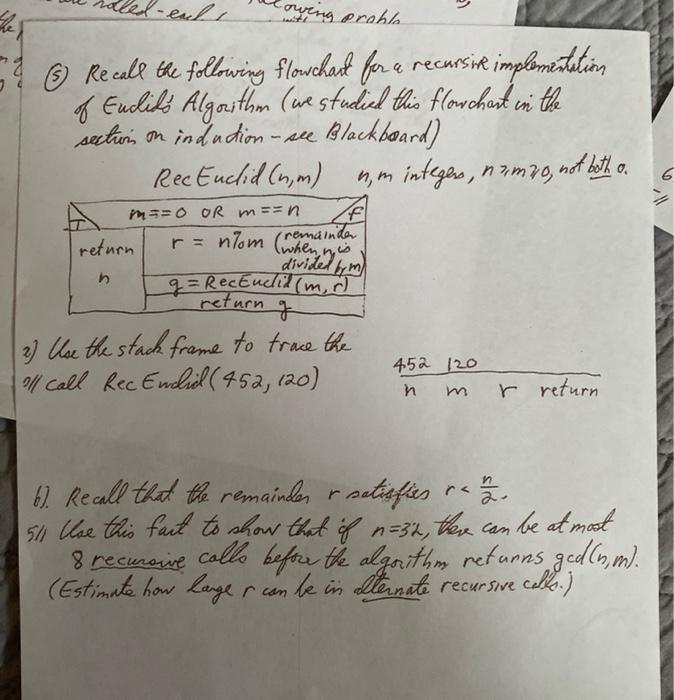 rolled-each
following probl
⑤ Recall the following flowchart for a recursive implementation
of Euclid's Algorithm (we studied this flowchart in the
section on induction - see Blackboard)
RecEuclid (n,m) n, m integers, n ≥ m ≥ 0, not both 0.
T m==0 OR m==n F
return n
r = n%m (remainder
when n is
divided by m)
g = RecEuclid(m, r)
return g
a) Use the stack frame to trace the
call RecEuclid(452, 120)
452 120
n m r return
b). Recall that the remainder r satisfies r < n/2.
5// Use this fact to show that if n=32, there can be at most
8 recursive calls before the algorithm returns gcd(n,m).
(Estimate how large r can be in alternate recursive calls.)
6